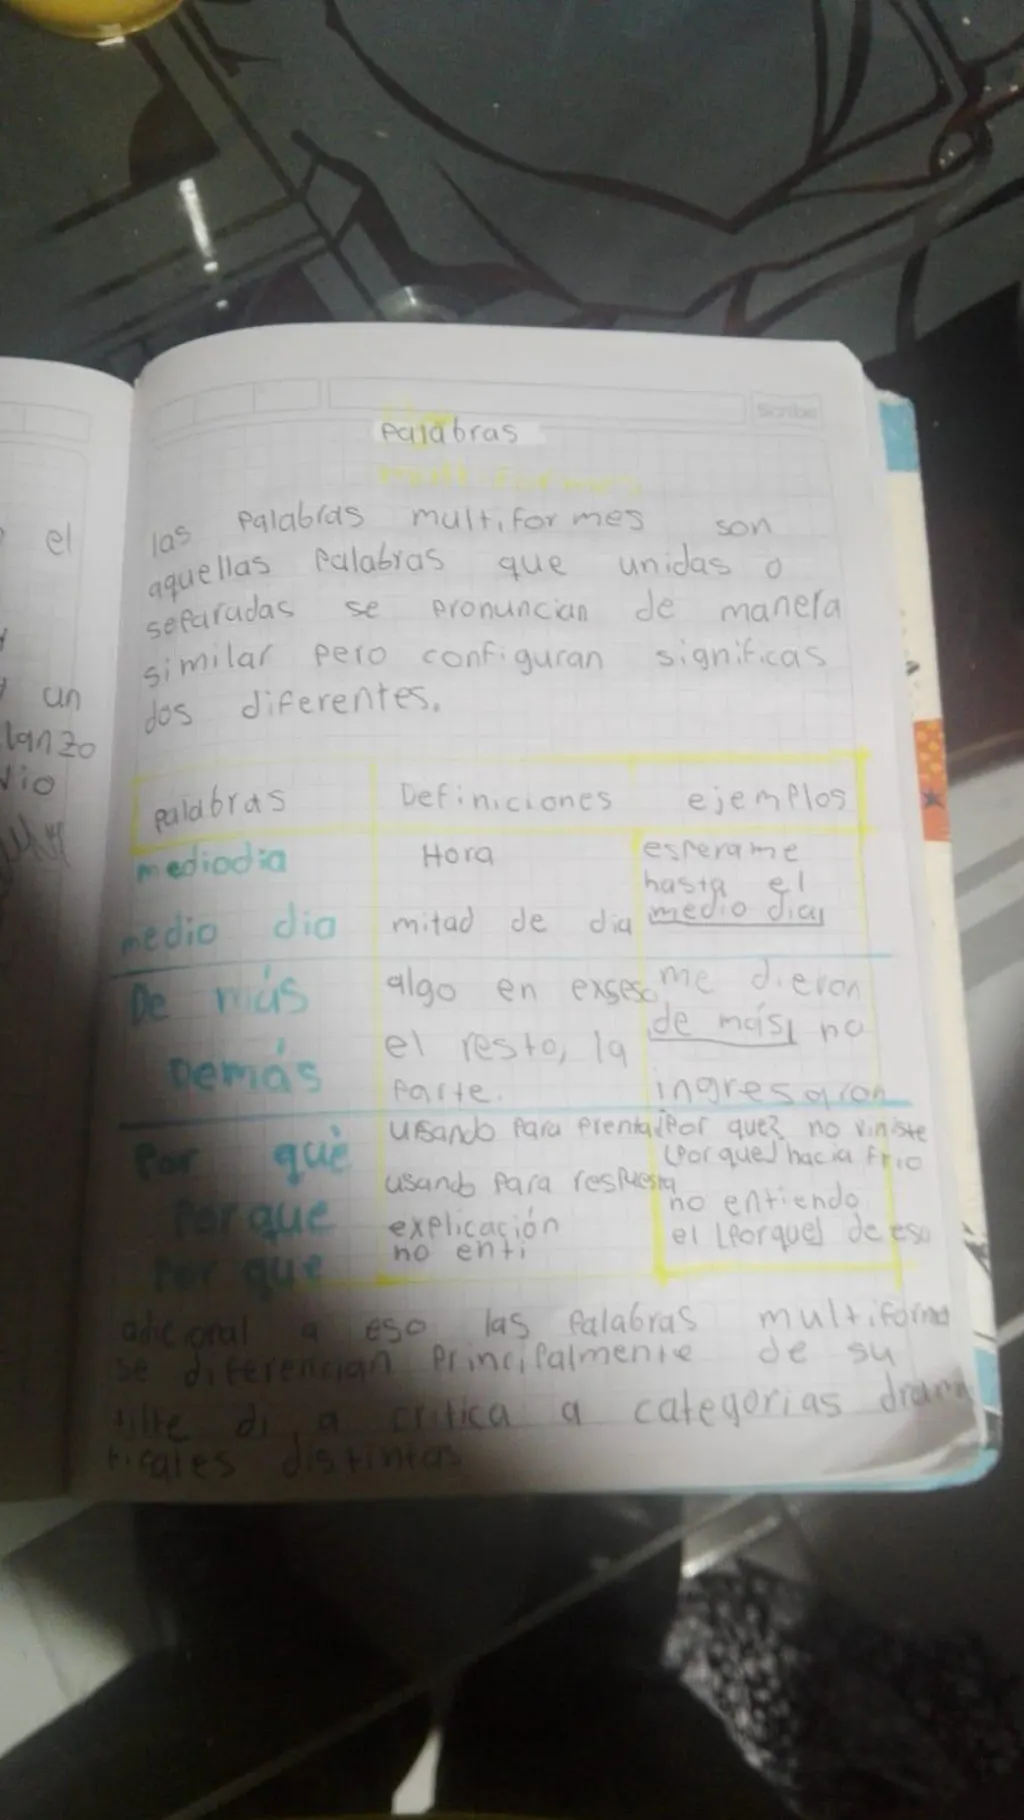 Scribe
Palabras
multiformes
las Palabras multiformes son
aquellas Palabras que unidas o
separadas se pronuncian de manera
similar pero configuran significas
dos diferentes.
palabras Definiciones ejemplos
mediodia Hora esperame
hasta el
medio dia mitad de dia medio dia
De más algo en exseso me dieron
de más, no
el resto, la
Demás parte. ingresaron
Por qué usando Para prenta ¿Por que? no viniste
(Por que) hacia Frio
usando para respuesta
no entiendo
Por que explicación el (Porque) de eso
no enti
Por que
adicional a eso las Palabras multiforme
se diferencian Principalmente de su
tilte di a critica a categorias drama
ticales distintas
el
un
lanzo